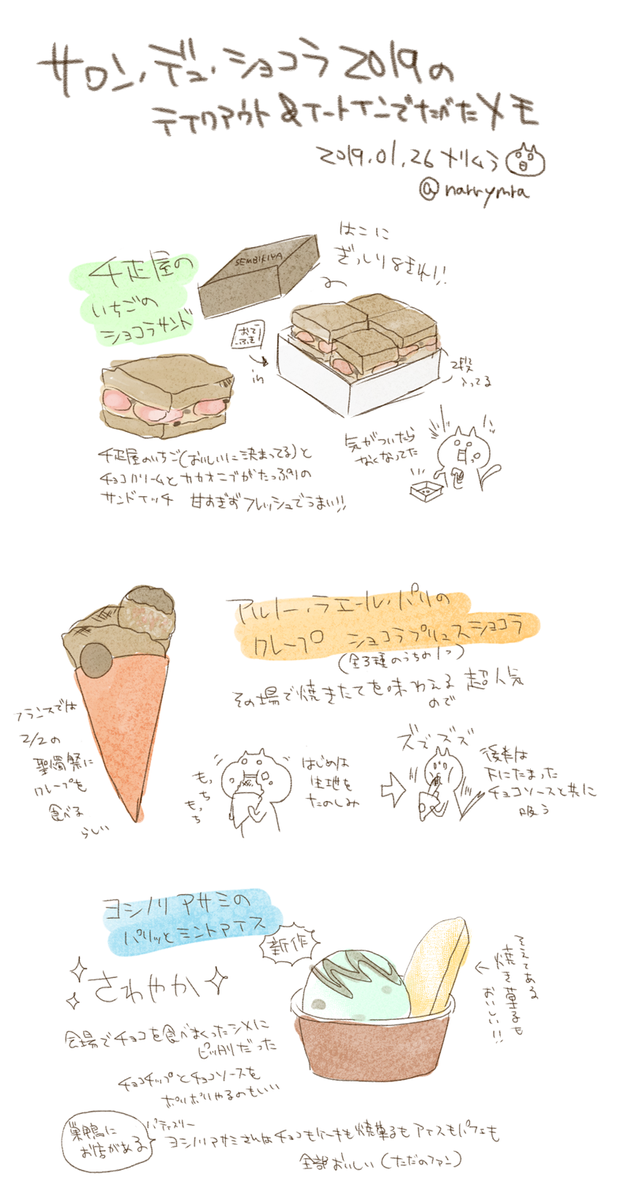 サロン・デュ・ショコラ2019の
テイクアウト&イートインでたべたメモ
2019.01.26 メリムラ
@narrymra
千疋屋の
いちごの
ショコラサンド
SEMBIKIYA
はこに
ぎっしり&きれい!!
おてふき
in
2段
入ってる
千疋屋のいちご(おいしいに決まってる)と
チョコクリームとカカオニブがたっぷりの
サンドイッチ 甘すぎずフレッシュでうまい!!
気がついたら
なくなってた
アルノー・ラエール・パリの
クレープ ショコラプリュスショコラ
(全3種のうちの1つ)
その場で焼きたてを味わえる
ので
超人気
フランスでは
2/2の
聖燭祭に
クレープを
食べる
らしい
もっち
もっち
はじめは
生地を
たのしみ
ズズズズ
後半は
下にたまった
チョコソースと共に
吸う
ヨシノリアサミの
パリッとミントアイス
新作
さわやか
会場でチョコを食べまくったシメに
ピッタリだった
チョコチップとチョコソースを
ポリポリやるのもいい
そえてある
焼き菓子も
おいしい!!
巣鴨に
お店がある
パティスリー
ヨシノリアサミさんはチョコもケーキも焼菓子もアイスもパフェも
全部おいしい(ただのファン)